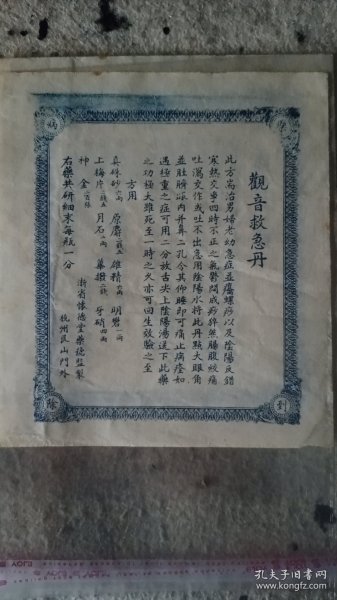 觀音救急丹
此方耑治男婦老幼急症並瘟螺痧以及陰陽反錯
寒熱交爭四時不正之氣鬱悶成痧猝然腸腹絞痛
吐瀉交作或吐不出急用陰陽水將此丹點大眼角
並肚臍眼內并鼻二孔令其仰睡即可痛止病痊如
遇極重之症可用二分放舌尖上陰陽湯送下此藥
之功極大雖死至一時之久亦可回生效驗之至
方用
真硃砂 原麝 雄精 明礬一兩
上梅片 月石一兩 蓽撥 牙硝四兩
神金
右藥共研細末每瓶一分
浙省懷德堂藥號監製
杭州艮山門外
病
對
除
孔夫子旧书网
www.kongfz.com